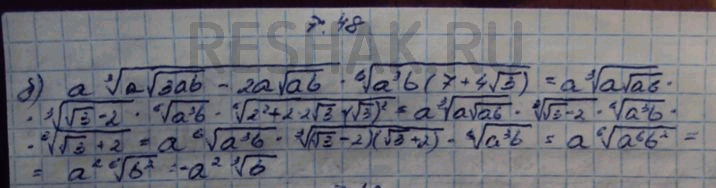 7.48
RESHAK.RU
б) a ∛(a√(3ab) - 2a√(ab)) · ⁶√(a³b(7+4√3)) = a ∛(a√(ab)) ·
· ∛(√3-2) · ⁶√(a³b) · ⁶√(2²+2·2√3+(√3)²) = a ∛(a√(ab)) · ∛(√3-2) · ⁶√(a³b) ·
· ∛(√3+2) = a ⁶√(a³b) · ∛((√3-2)(√3+2)) · ⁶√(a³b) = a ⁶√(a⁶b²) =
= a² ⁶√(b²) = -a² ∛b